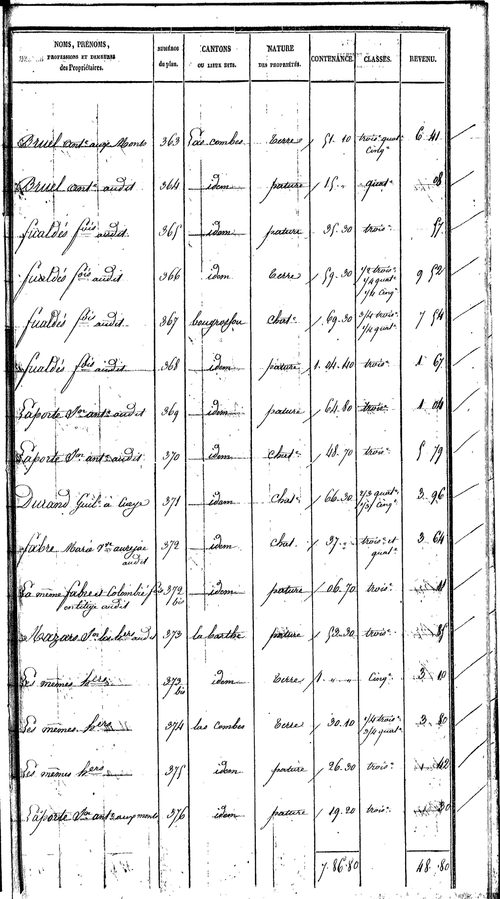 NOMS, PRÉNOMS, PROFESSIONS ET DEMEURES des Propriétaires. NUMÉROS du plan. CANTONS OU LIEUX DITS. NATURE DES PROPRIÉTÉS. CONTENANCE. CLASSES. REVENU.
Bruel ant.e aux Monts 363 Las combes terre 51.10 trois quat.e cinq.e 6 41
Bruel ant.e audit 364 idem pature 15 quat.e 08
fualdés fois audit 365 idem pature 35.30 trois.e 57
fualdés fois audit 366 idem terre 59.30 1/2 trois.e 1/4 quat.e 1/4 cinq.e 9 52
fualdés fois audit 367 bougrosfou chat.e 69.30 3/4 trois.e 1/4 quat.e 7 54
fualdés fois audit 368 idem pature 1.04.40 trois.e 1 67
Laporte ant.e audit 369 idem pature 64.80 trois.e 1 04
Laporte ant.e audit 370 idem chat.e 48.70 trois.e 5 79
Durand Guil.e à 371 idem chat.e 66.30 2/3 quat.e 1/3 cinq.e 3 96
fabre Marie audit 372 idem chat. 37 trois.e et quat.e 3 64
La même fabre et Colombié fois audit 372 bis idem pature 06.70 trois.e 11
Mazars les hers audit 373 la barthe pature 53.30 trois.e 85
Les mêmes hers 373 bis idem terre 1 cinq.e 3 10
Les mêmes hers 374 las combes terre 30.10 1/4 trois.e 3/4 quat.e 3 80
Les mêmes hers 375 idem pature 26.30 trois.e 42
Laporte ant.e aux monts 376 idem pature 19.20 trois.e 30
7.86.80 48.80